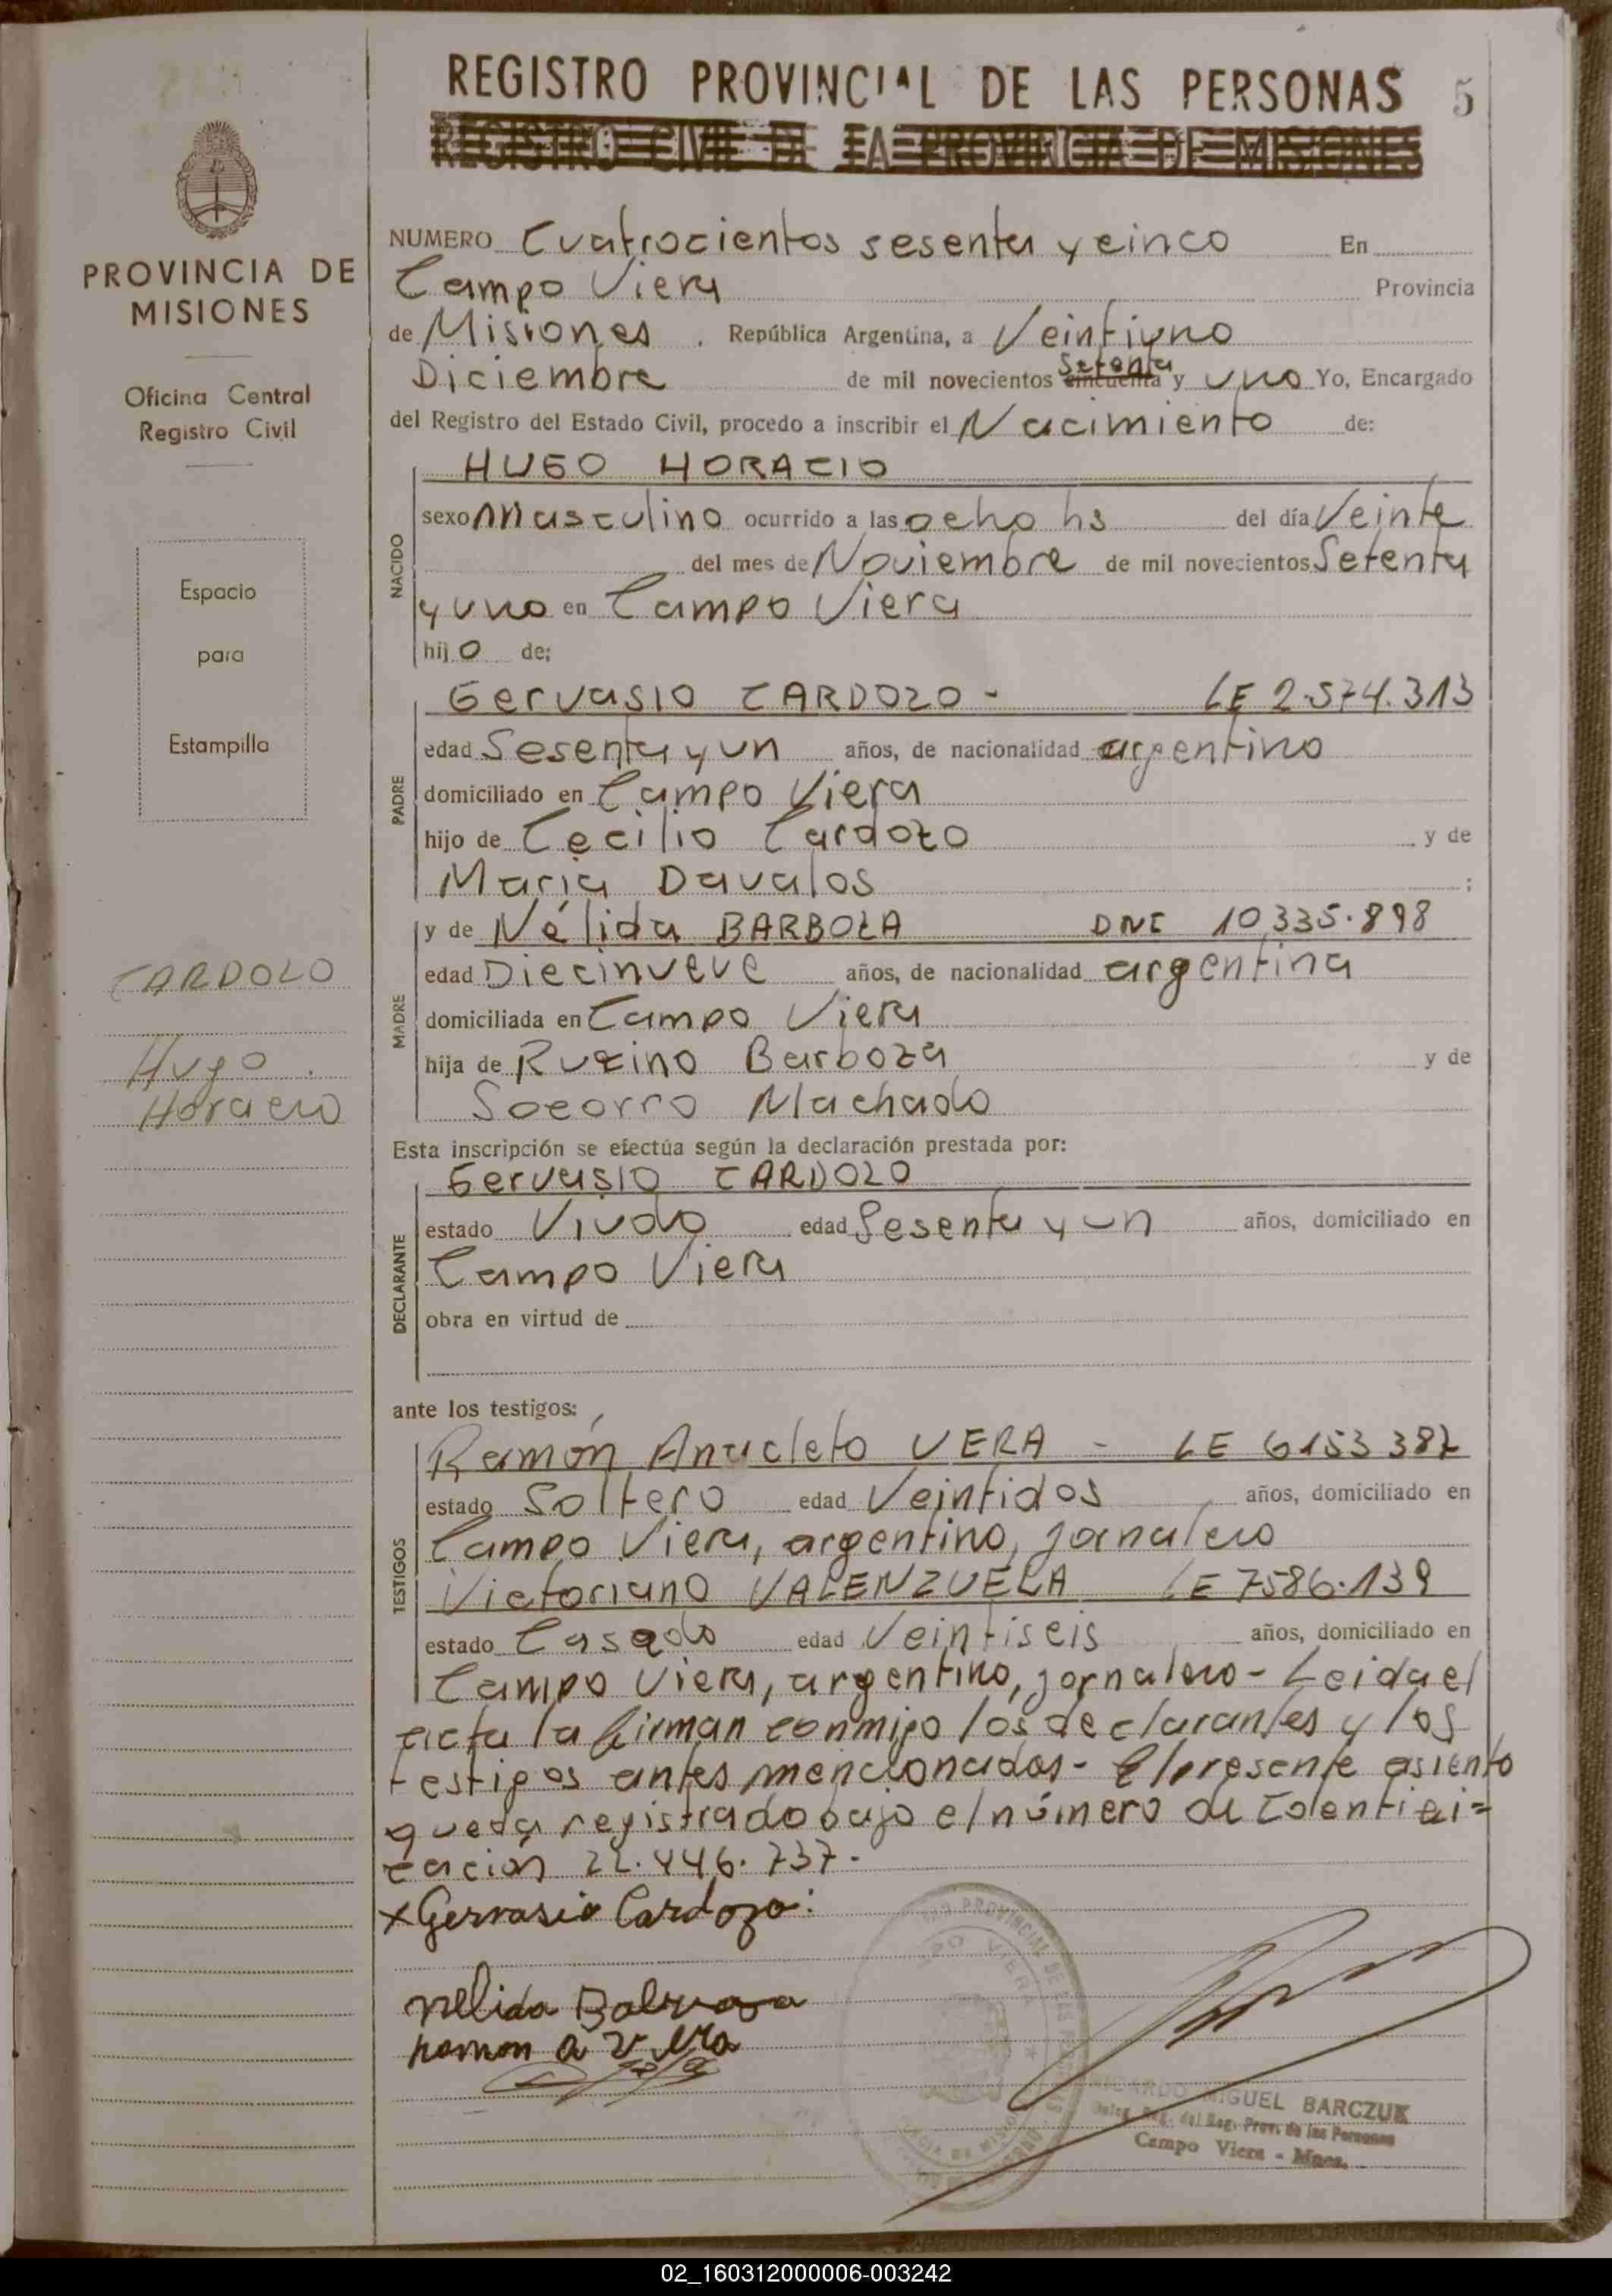 REGISTRO PROVINCIAL DE LAS PERSONAS 5
REGISTRO CIVIL DE LA PROVINCIA DE MISIONES
PROVINCIA DE
MISIONES
Oficina Central
Registro Civil
Espacio
para
Estampilla
CARDOZO
Hugo
Horacio
NUMERO Cuatrocientos sesenta y cinco En
Campo Viera Provincia
de Misiones . República Argentina, a Veintiuno
Diciembre de mil novecientos cincuenta Setenta y uno Yo, Encargado
del Registro del Estado Civil, procedo a inscribir el Nacimiento de:
NACIDO
HUGO HORACIO
sexo Masculino ocurrido a las ocho hs del día Veinte
del mes de Noviembre de mil novecientos Setenta
y uno en Campo Viera
hijo de:
PADRE
Gervasio CARDOZO - LE 2.574.313
edad Sesenta y un años, de nacionalidad argentino
domiciliado en Campo Viera
hijo de Cecilio Cardozo y de
Maria Davalos ;
MADRE
y de Nélida BARBOZA DNI 10,335.898
edad Diecinueve años, de nacionalidad argentina
domiciliada en Campo Viera
hija de Rufino Barboza y de
Socorro Machado
Esta inscripción se efectúa según la declaración prestada por:
DECLARANTE
Gervasio CARDOZO
estado Viudo edad Sesenta y un años, domiciliado en
Campo Viera
obra en virtud de
ante los testigos:
TESTIGOS
Ramón Anacleto VERA - LE 6153387
estado Soltero edad Veintidos años, domiciliado en
Campo Viera, argentino, jornalero
Victoriano VALENZUELA LE 7586.139
estado Casado edad Veintiseis años, domiciliado en
Campo Viera, argentino, jornalero - Leida el
acta la firman conmigo los declarantes y los
testigos antes mencionados - El presente asiento
queda registrado bajo el número de Identifi=
cación 22.446.737.-
x Gervasio Cardozo:
Nelida Barboza
Ramon A Vera
RICARDO MIGUEL BARCZUK
Deleg. Reg. del Reg. Prov. de las Personas
Campo Viera - Mnes.
02_160312000006-003242